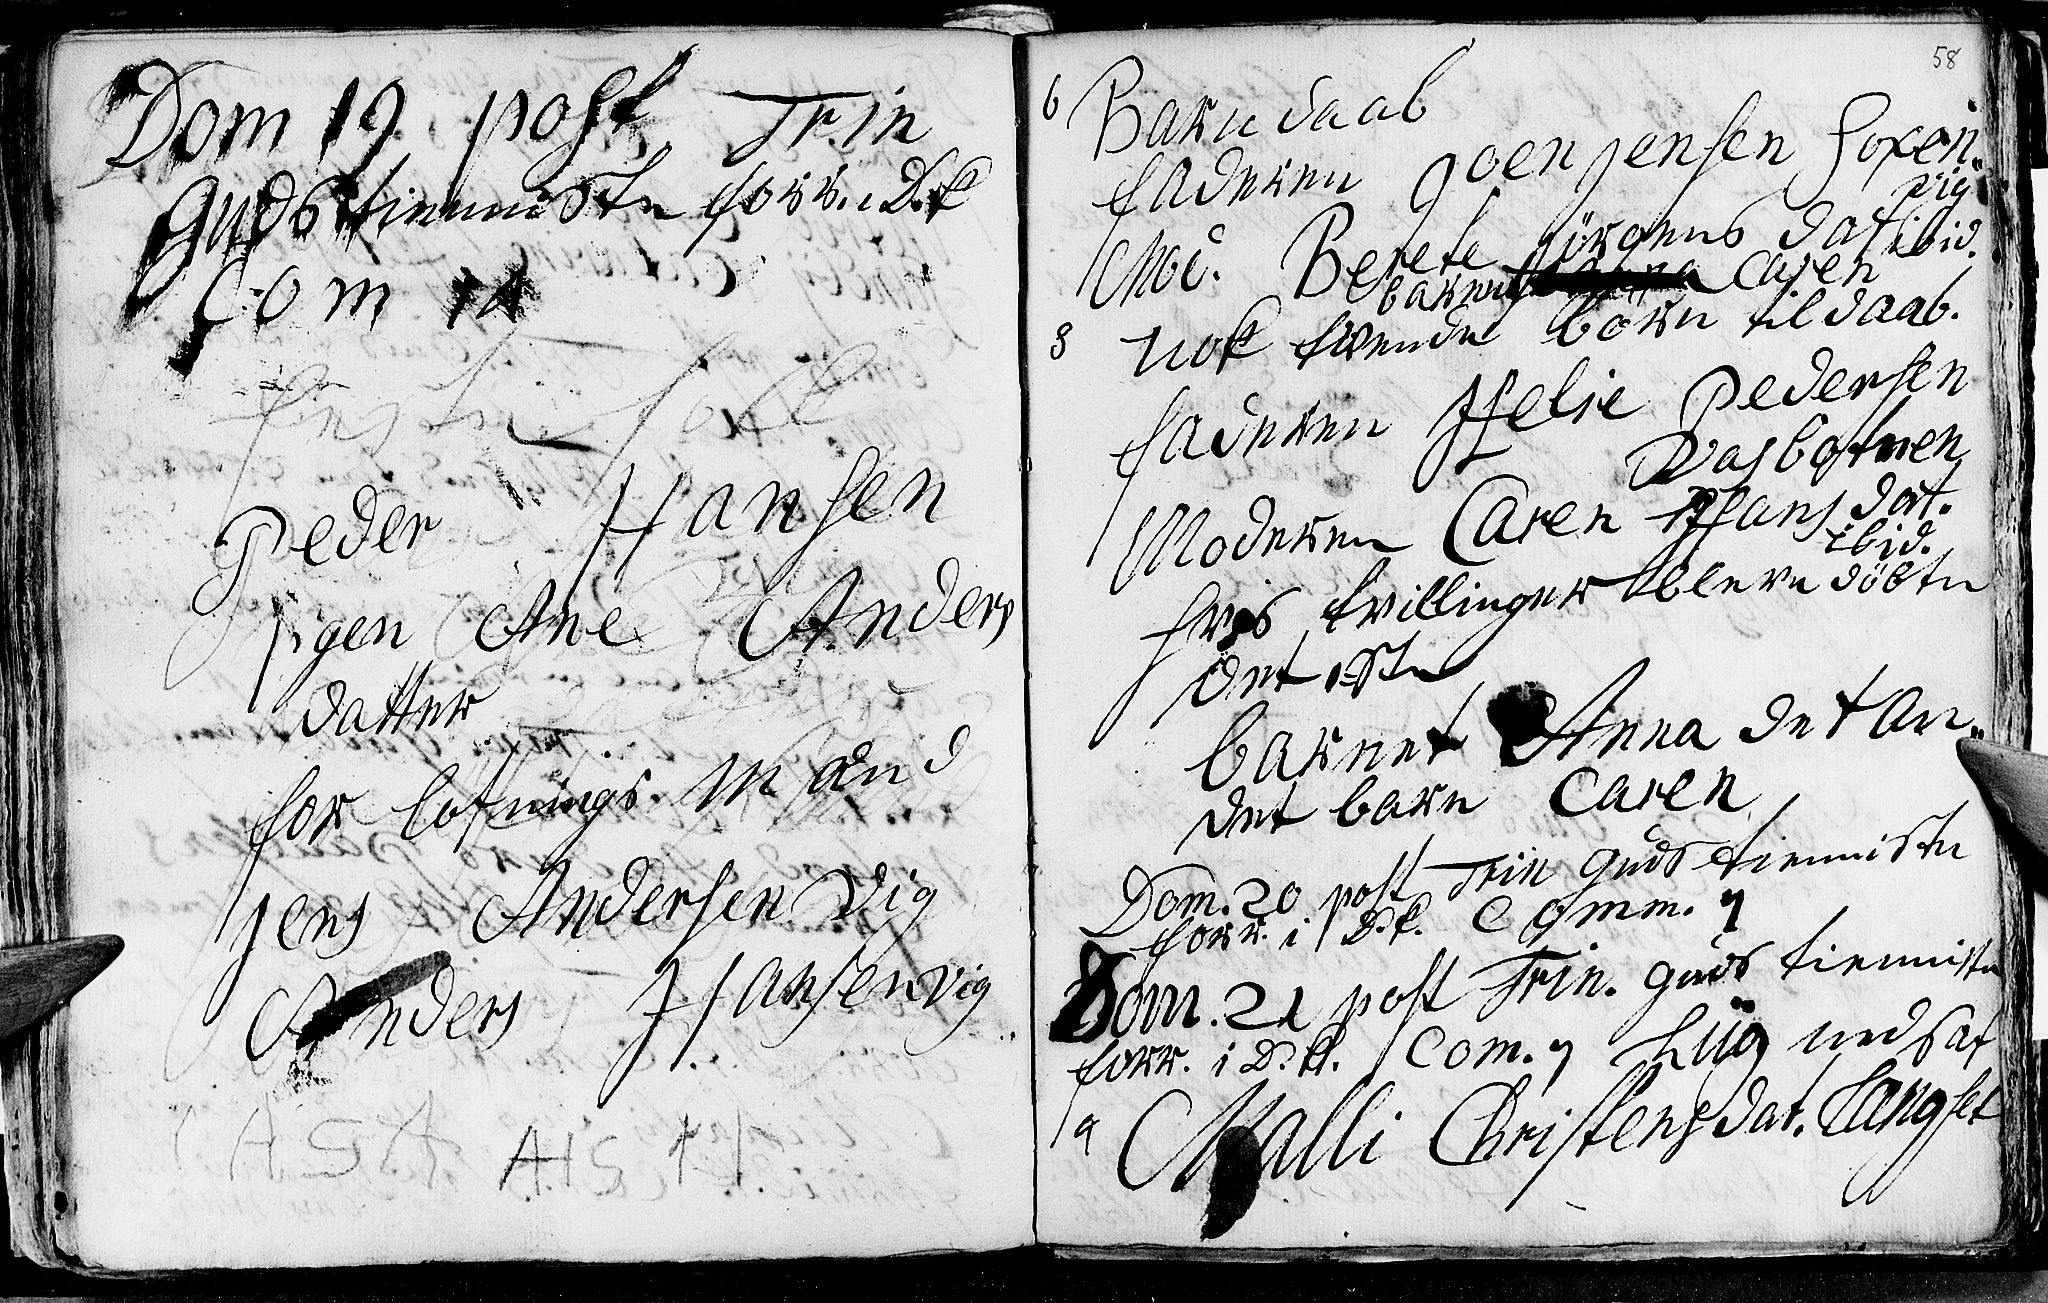 Dom 19 post Trin
Guds tienniste forr. i D.k
Com 14
Peder Hansen
pigen Ane Anders
datter
forlofnings Mænd
Jens Andersen Vig
Anders Hansen Vig
H S A
58
6 Barn daab
faderen Joen Jensen
vig
Mod. Berete Jörgens dat ibid.
barnet Caren
8 nok trende börn til daab.
faderen Helie Pedersen
Vasbotnen
Moderen Caren Hans dat.
ibid.
hvis tvillinger bleve döbte
det 1ste
barnet Anna det an-
det barn Caren
Dom. 20 post Trin Guds tienniste
forr. i D.k. Comm. 7
Dom. 21 post Trin. Guds tienniste
forr. i D.k. Com. 7 Liig nedsat
a Malli Christens dat. Langset